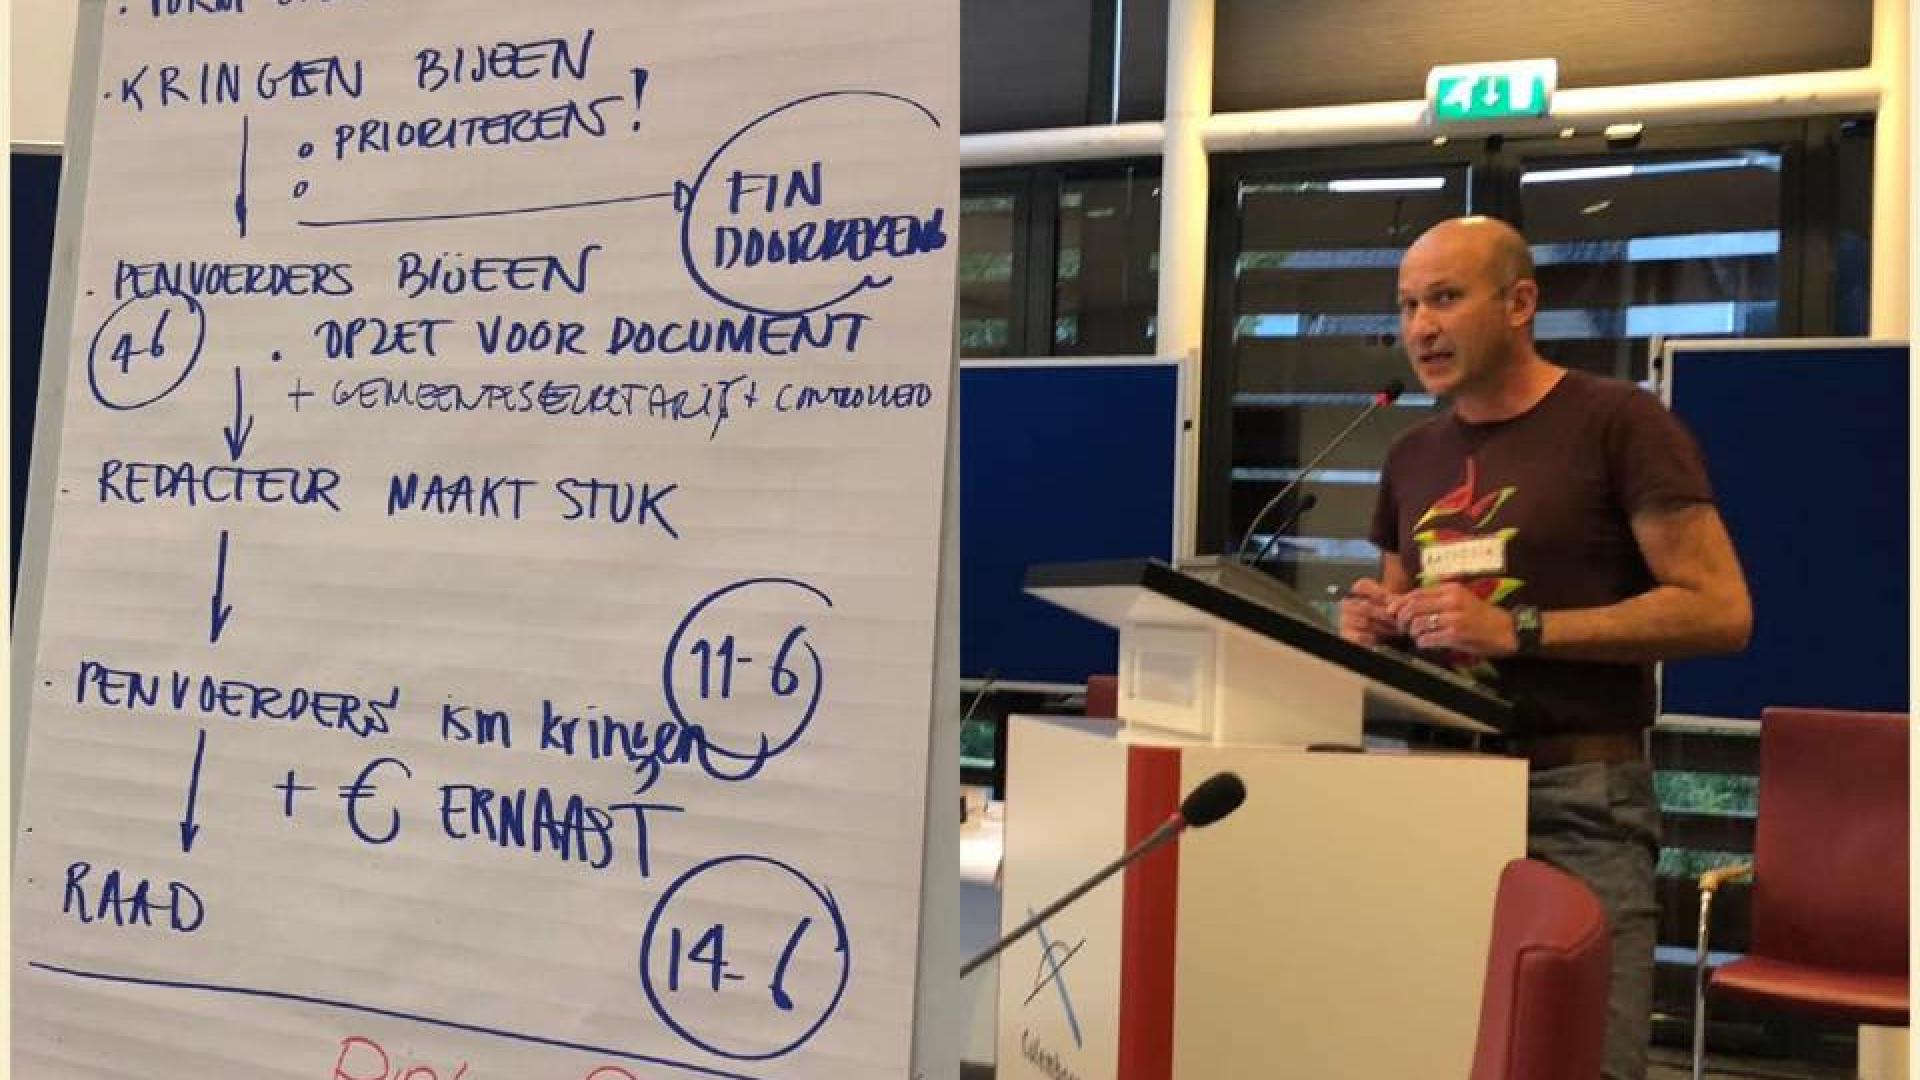 · KRINGEN BIJEEN
o PRIORITEREN!
o
FIN
DOORREKENEN
· PENVOERDERS BIJEEN
4-6
· OPZET VOOR DOCUMENT
+ GEMEENTESECRETARIS +
· REDACTEUR MAAKT STUK
11-6
· PENVOERDERS ism kringen
+ € ERNAAST
· RAAD
14-6